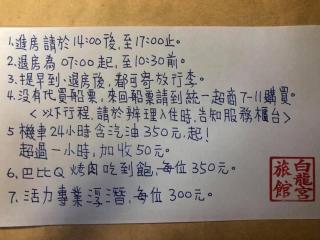 1.進房請於14:00後,至17:00止。
2.退房為07:00起,至10:30前。
3.提早到、退房後,都可寄放行李。
4.沒有代買船票,來回船票請到統一超商7-11購買。
<以下行程,請於辦理入住時,告知服務櫃台>
5 機車24小時含汽油350元,起!
超過一小時,加收50元。
6.巴比Q 烤肉吃到飽,每位350元。
7.活力專業浮潛,每位300元。
白龍宮
旅館